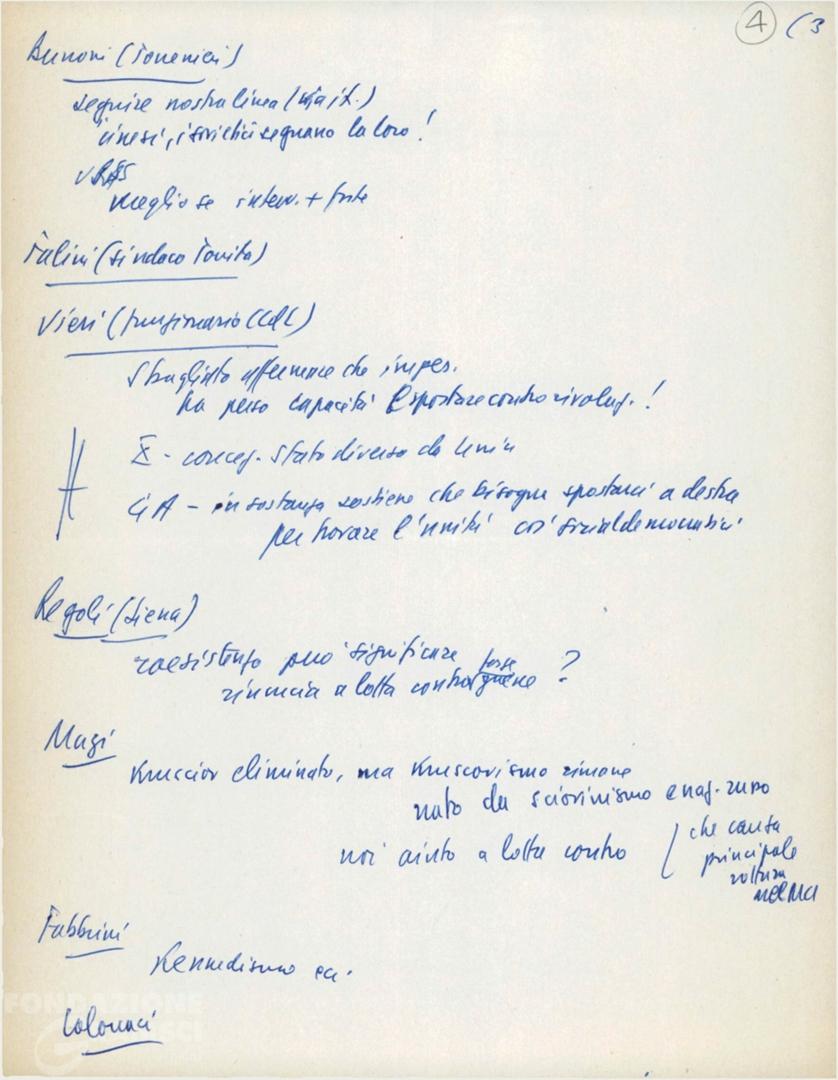 4 (3
Bunoni (Torrenieri)
seguire nostra linea (via it.)
cinesi, i sovietici seguano la loro!
URSS
meglio se interv. + forte
Falini (sindaco Torrita)
Vieri (funzionario CCdL)
Sbagliato affermare che imper.
ha perso capacità esportare controrivoluz.!
X - concez. Stato diverso da Lenin
GA - in sostanza sostiene che bisogna spostarci a destra
per trovare l'unità coi socialdemocratici
Regoli (Siena)
coesistenza può significare forse
rinuncia a lotta contro guerre ?
Magi
Krusciov eliminato, ma Kruscovismo rimane
nato da sciovinismo e naz. russo
noi aiuto a lotta contro
( che causa
principale
rottura
nel MCI
Fabbrini
Kennedismo ecc.
Colonaci
FONDAZIONE